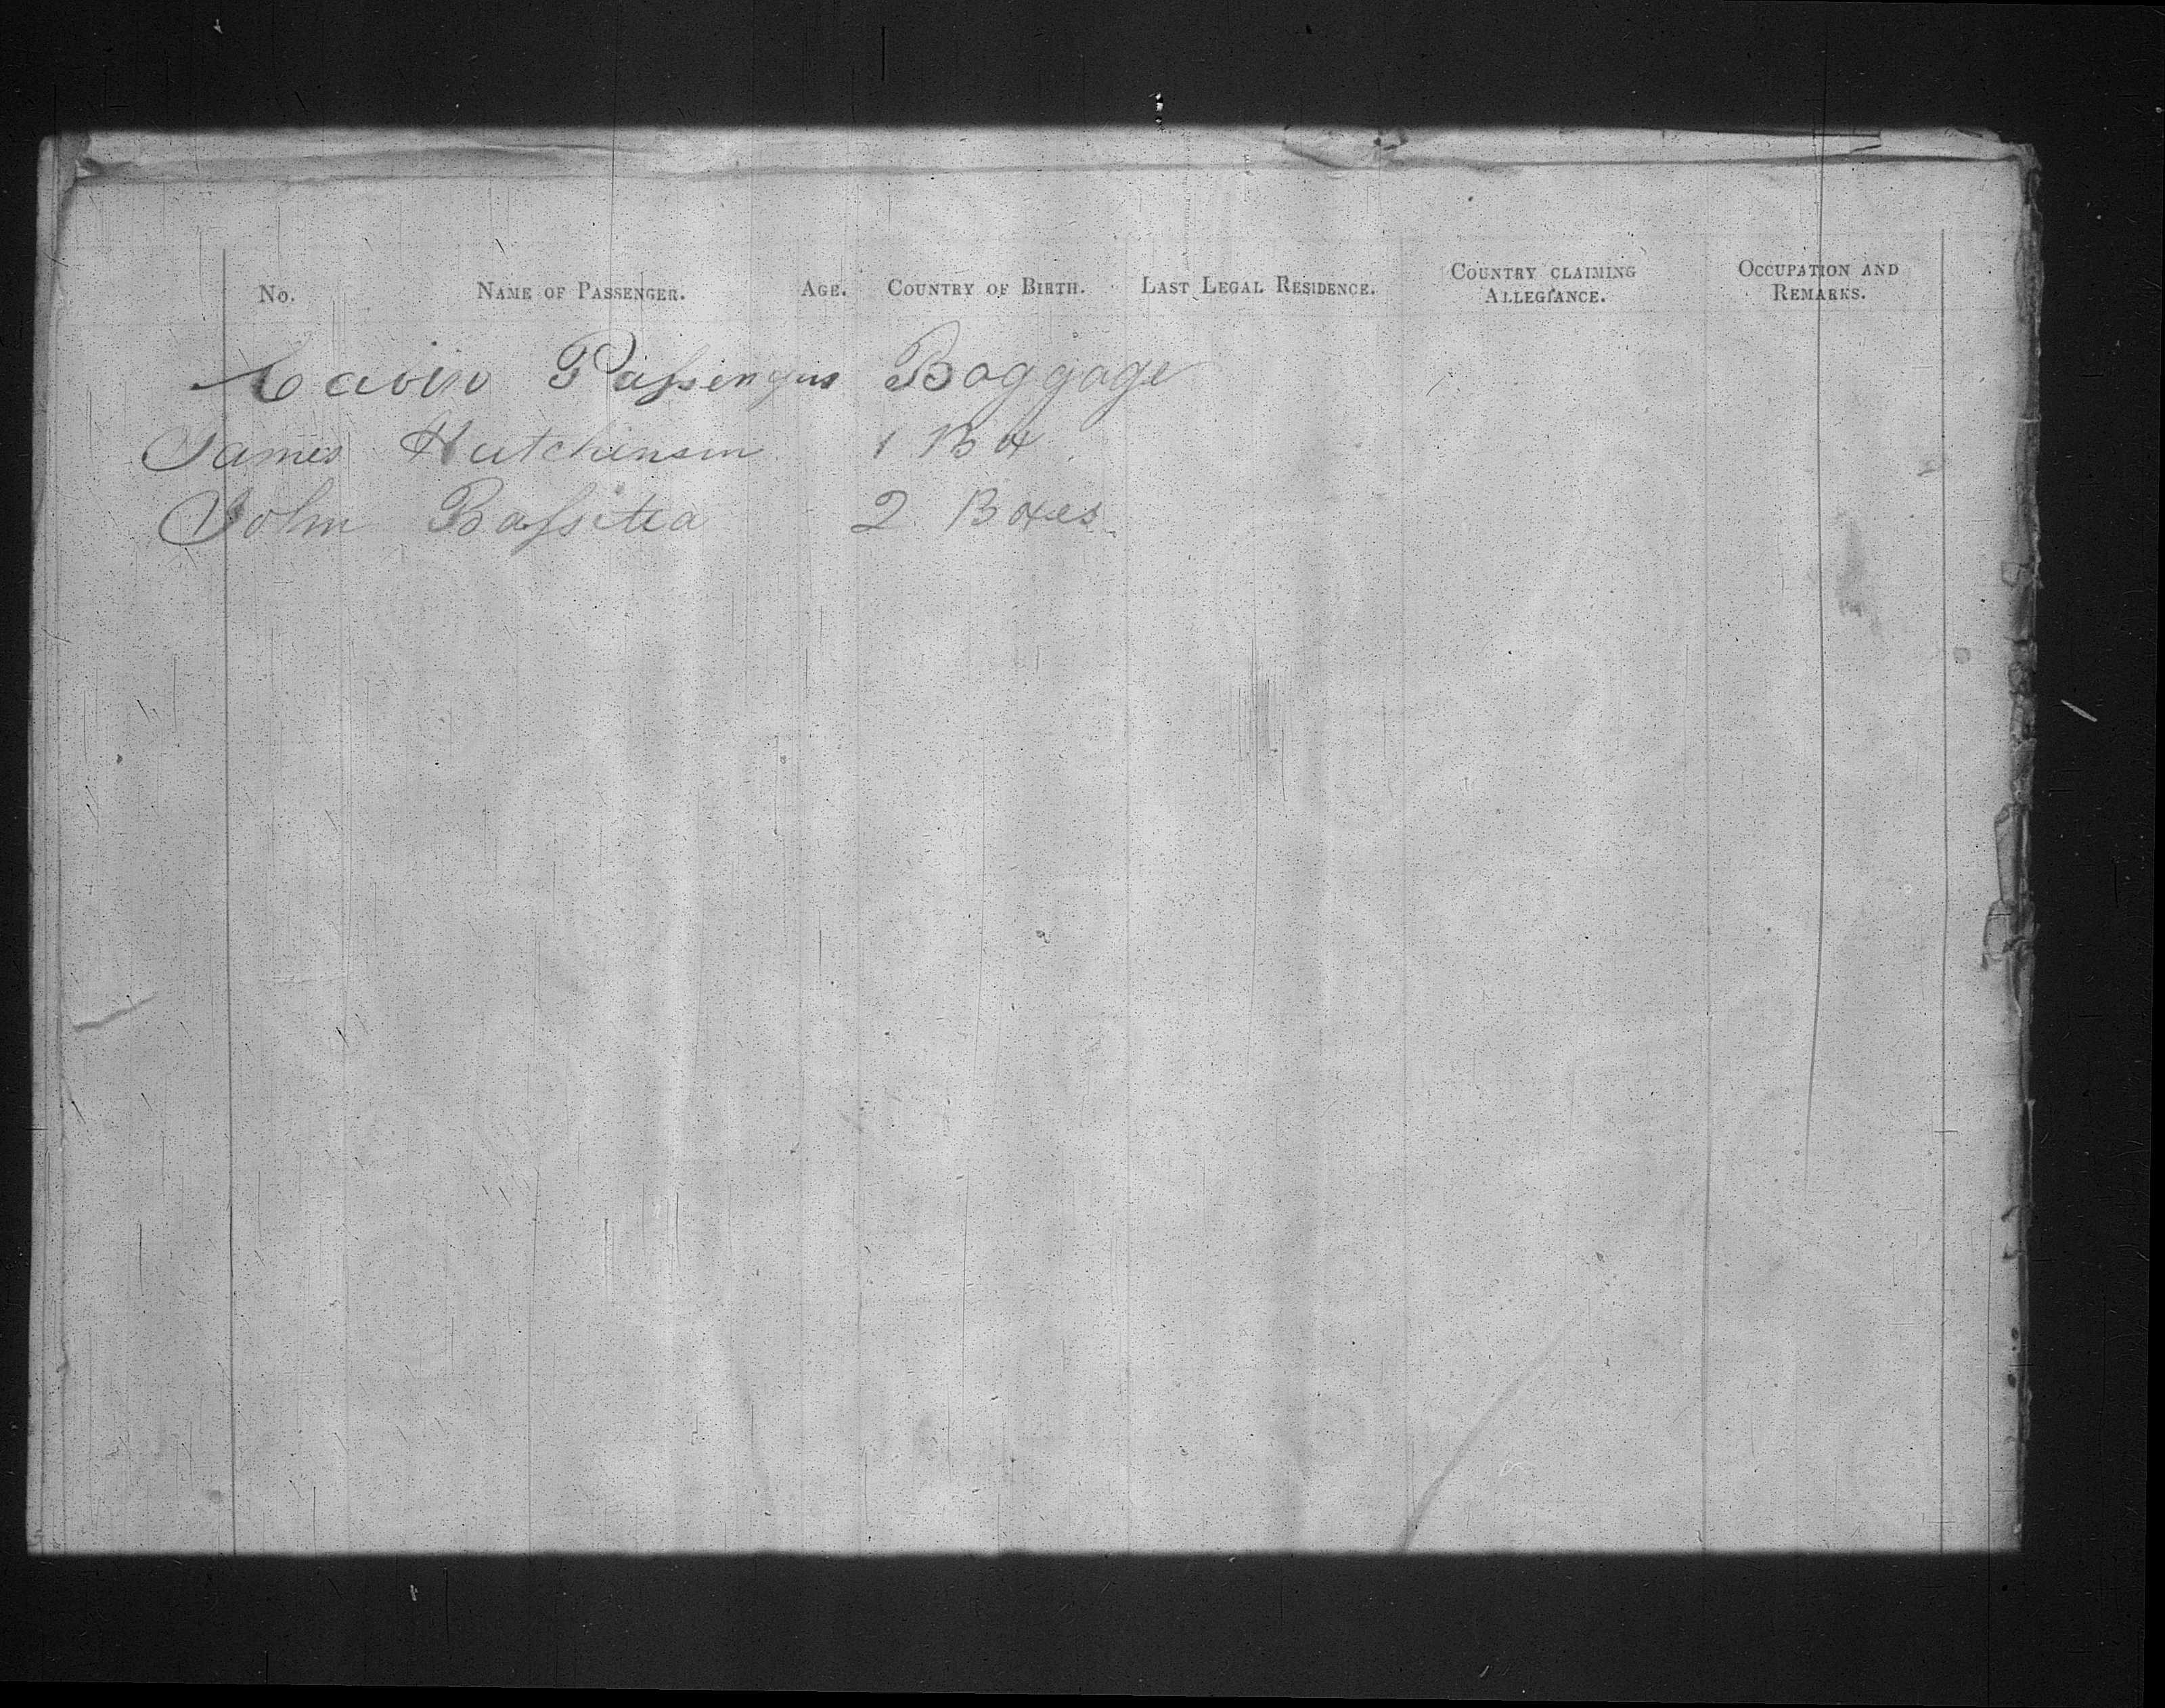 No. NAME OF PASSENGER. AGE. COUNTRY OF BIRTH. LAST LEGAL RESIDENCE. COUNTRY CLAIMING ALLEGIANCE. OCCUPATION AND REMARKS.
Cabin Passengers Baggage
James Hutchinson 1 Box
John 2 Boxes